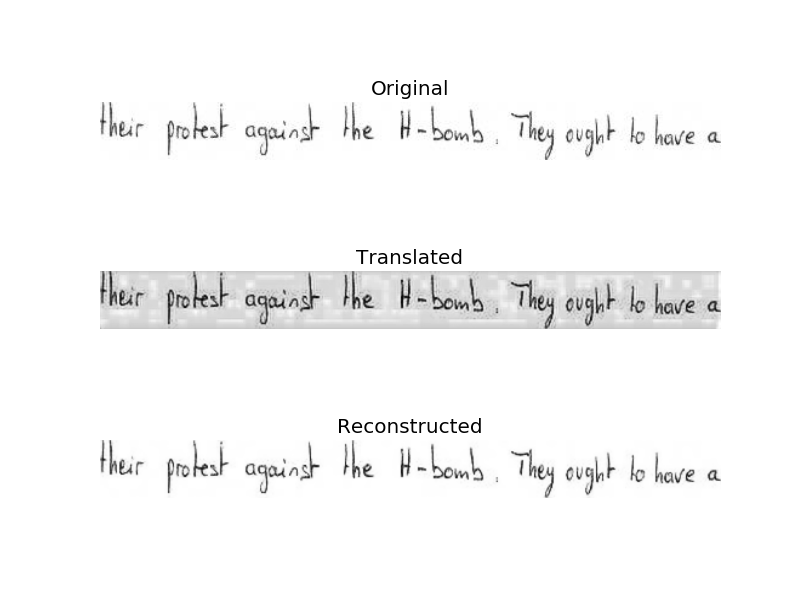 Original
their protest against the H-bomb. They ought to have a
Translated
their protest against the H-bomb. They ought to have a
Reconstructed
their protest against the H-bomb. They ought to have a